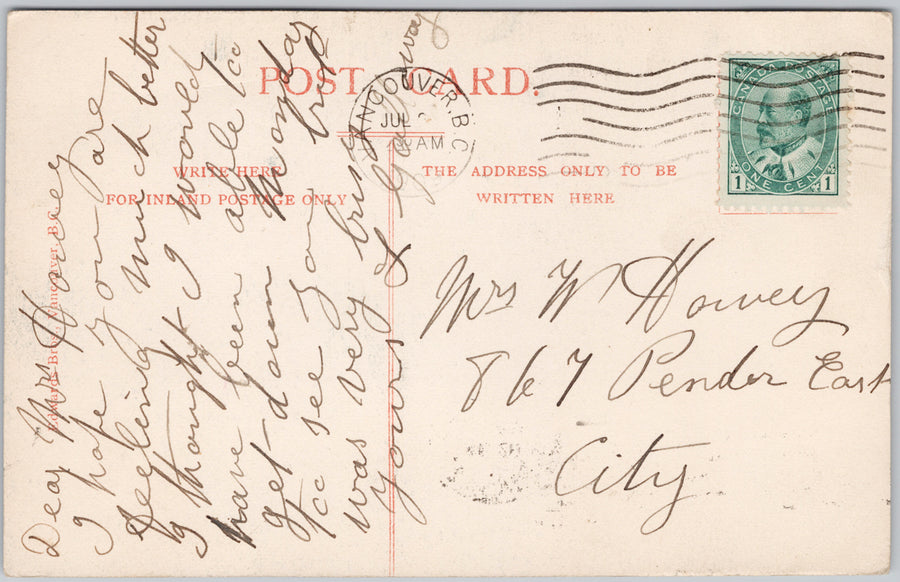 POST CARD.
WRITE HERE
FOR INLAND POSTAGE ONLY
THE ADDRESS ONLY TO BE
WRITTEN HERE
VANCOUVER. B.C.
JUL
AM
CANADA POSTAGE
1 ONE CENT 1
Mrs W Howey
867 Pender East
City
Dear Mrs Howey
I hope you are
feeling much better
I thought I would
have been able to
get down Monday
to see you but
was very busy
yours &
Edwards Bros., Vancouver, B.C.